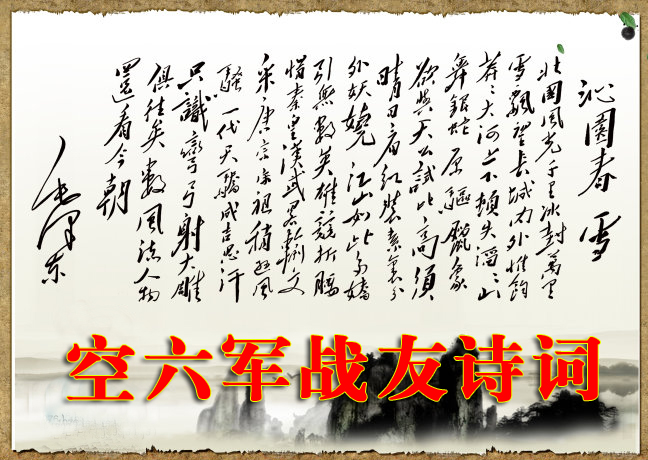 沁園春 雪
北國風光千里冰封萬里
雪飄望長城内外惟餘
莽〻大河上下頓失滔〻山
舞銀蛇原驅臘象
欲與天公試比高須
晴日看紅裝素裹分
外妖嬈江山如此多嬌
引無數英雄競折腰
惜秦皇漢武略輸文
采唐宗宋祖稍遜風
騷一代天驕成吉思汗
只識彎弓射大雕
俱往矣數風流人物
還看今朝
毛澤東
空六军战友诗词